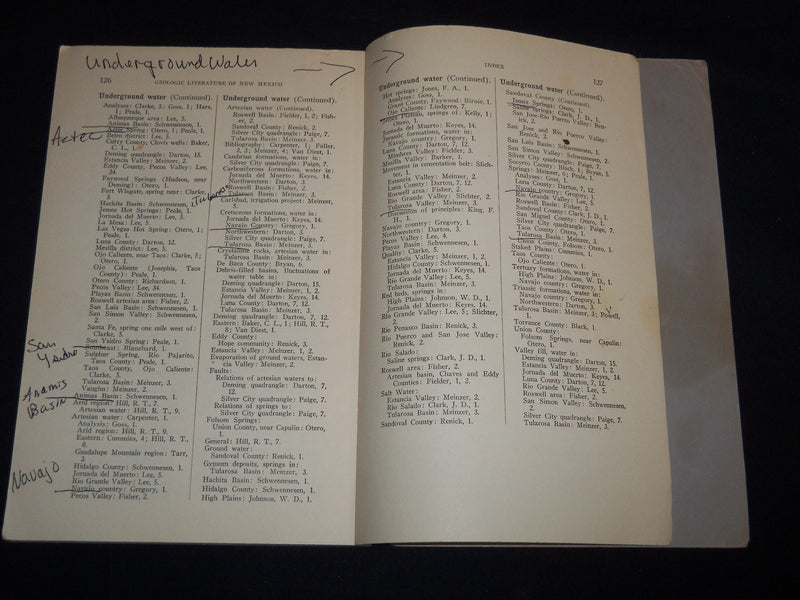 Underground Water
126 GEOLOGIC LITERATURE OF NEW MEXICO
Underground water (Continued).
Analyses: Clarke, 5; Goss, 1; Hare,
1; Peale, 1.
Albuquerque area: Lee, 5.
Animas Basin: Schwennesen, 1.
Aztec
Aztec Spring: Otero, 1; Peale, 1.
Belen district: Lee, 5.
Curry County, Clovis wells: Baker,
C. L., 1.
Deming quadrangle: Darton, 15.
Estancia Valley: Meinzer, 2.
Eddy County, Pecos Valley: Lee,
34.
Faywood Springs (Hudson, near
Deming): Otero, 1.
Fort Wingate, spring near: Clarke,
5.
Hachita Basin: Schwennesen, 1.
Jemez Hot Springs: Peale, 1.
Jornada del Muerto: Lee, 5.
La Mesa: Lee, 5.
Las Vegas Hot Spring: Otero, 1;
Peale, 1.
Luna County: Darton, 12.
Mesilla district: Lee, 5.
Ojo Caliente, near Taos: Clarke, 5;
Otero, 1.
Ojo Caliente (Josephia, Taos
County): Peale, 1.
Otero County: Richardson, 1.
Pecos Valley: Lee, 34.
Playas Basin: Schwennesen, 1.
Roswell artesian area: Fisher, 2.
San Luis Basin: Schwennesen, 1.
San Simon Valley: Schwennesen,
2.
Santa Fe, spring one mile west of:
Clarke, 5.
San Ysidro
San Ysidro Spring: Peale, 1.
Southeast: Blanchard, 1.
Sulphur Spring, Rio Pajarito,
Taos County: Peale, 1.
Taos County, Ojo Caliente:
Clarke, 5.
Tularosa Basin: Meinzer, 3.
Vaughn: Meinzer, 2.
Anamis Basin
Animas Basin: Schwennesen, 1.
Arid region: Hill, R. T., 7.
Artesian water: Hill, R. T., 9.
Artesian water: Carpenter, 1.
Analysis: Goss, 1.
Arid region: Hill, R. T., 9.
Eastern: Cummins, 4; Hill, R. T.,
8.
Guadalupe Mountain region: Tarr,
3.
Hidalgo County: Schwennesen, 1.
Jornada del Muerto: Lee, 5.
Rio Grande Valley: Lee, 5.
Navajo
Navajo country: Gregory, 1.
Pecos Valley: Fisher, 2.
Underground water (Continued).
Artesian water (Continued).
Roswell Basin: Fiedler, 1, 2; Fish-
er, 2.
Sandoval County: Renick, 2.
Silver City quadrangle: Paige, 7.
Tularosa Basin: Meinzer, 3.
Bibliography: Carpenter, 1; Fuller,
2, 3; Meinzer, 4; Van Diest, 1.
Cambrian formations, water in:
Silver City quadrangle: Paige, 7.
Carboniferous formations, water in:
Jornada del Muerto: Keyes, 14.
Northwestern: Darton, 3.
Roswell Basin: Fisher, 2.
Tularosa Basin: Meinzer, 3.
Carlsbad, irrigation project: Meinzer,
7.
Cretaceous formations, water in:
Jornada del Muerto: Keyes, 14.
Navajo Country: Gregory, 1.
Northwestern: Darton, 3.
Silver City quadrangle: Paige, 7.
Tularosa Basin: Meinzer, 3.
Crystalline rocks, artesian water in:
Tularosa Basin: Meinzer, 3.
De Baca County: Bryan, 6.
Debris-filled basins, fluctuations of
water table in:
Deming quadrangle: Darton, 15.
Estancia Valley: Meinzer, 1, 2.
Jornada del Muerto: Keyes, 14.
Luna County: Darton, 7, 12.
Tularosa Basin: Meinzer, 3.
Deming quadrangle: Darton, 7, 12.
Eastern: Baker, C. L., 1; Hill, R. T.,
8; Van Diest, 1.
Eddy County:
Hope community: Renick, 3.
Estancia Valley: Meinzer, 1, 2.
Evaporation of ground waters, Estan-
cia Valley: Meinzer, 2.
Faults:
Relations of artesian waters to:
Deming quadrangle: Darton, 7,
12.
Silver City quadrangle: Paige, 7.
Relations of springs to:
Silver City quadrangle: Paige, 7.
Folsom Springs:
Union County, near Capulin: Otero,
1.
General: Hill, R. T., 7.
Ground water:
Sandoval County: Renick, 1.
Gypsum deposits, springs in:
Tularosa Basin: Meinzer, 3.
Hachita Basin: Schwennesen, 1.
Hidalgo County: Schwennesen, 1.
High Plains: Johnson, W. D., 1.
INDEX 127
Underground water (Continued).
Hot springs: Jones, F. A., 1.
Analyses: Goss, 1.
Grant County, Faywood: Birnie, 1.
Ojo Caliente: Lindgren, 7.
Jemez Plateau, springs of: Kelly, 1;
Otero, 1.
Jornada del Muerto: Keyes, 14.
Jurassic formations, water in:
Navajo country: Gregory, 1.
Luna County: Darton, 7, 12.
Mimbres Valley: Fielder, 3.
Mesilla Valley: Barker, 1.
Movement in cementation belt: Slich-
ter, 1.
Estancia Valley: Meinzer, 2.
Luna County: Darton, 7, 12.
Roswell area: Fisher, 2.
Rio Grande Valley: Slichter, 2.
Tularosa Valley: Meinzer, 3.
Discussion of principles: King, F.
H., 1.
Navajo country: Gregory, 1.
Northwestern: Darton, 3.
Pecos Valley: Lee, 4.
Playas Basin: Schwennesen, 1.
Quality: Clarke, 5.
Estancia Valley: Meinzer, 1, 2.
Hidalgo County: Schwennesen, 1.
Jornada del Muerto: Keyes, 14.
Rio Grande Valley: Lee, 5.
Tularosa Basin: Meinzer, 3.
Red beds, springs in:
High Plains: Johnson, W. D., 1.
Jornada del Muerto: Keyes, 14.
Rio Grande Valley: Lee, 5; Slichter,
2.
Rio Penasco Basin: Renick, 3.
Rio Puerco and San Jose Valley:
Renick, 2.
Rio Salado:
Saline springs: Clark, J. D., 1.
Roswell area: Fisher, 2.
Artesian basin, Chaves and Eddy
Counties: Fiedler, 1, 2.
Salt Water:
Estancia Valley: Meinzer, 2.
Rio Salado: Clark, J. D., 1.
Tularosa Basin: Meinzer, 3.
Sandoval County: Renick, 1.
Underground water (Continued).
Sandoval County (Continued).
Jemez Springs: Otero, 1.
Saline Springs: Clark, J. D., 1.
San Jose-Rio Puerco Valley: Ren-
ick, 2.
San Jose and Rio Puerco Valley:
Renick, 2.
San Luis Basin: Schwennesen, 1.
San Simon Valley: Schwennesen, 2.
Silver City quadrangle: Paige, 7.
Socorro County: Black, 1; Bryan, 5.
Springs: Meinzer, 6; Peale, 1.
Analyses: Otero, 1.
Luna County: Darton, 7, 12.
Navajo country: Gregory, 1.
Rio Grande Valley: Lee, 5.
Roswell Basin: Fisher, 2.
Sandoval County: Clark, J. D., 1.
San Miguel County: Otero, 1.
Silver City quadrangle: Paige, 7.
Taos County: Otero, 1.
Tularosa Basin: Meinzer, 3.
Union County, Folsom: Otero, 1.
Staked Plains: Cummins, 1.
Taos County:
Ojo Caliente: Otero, 1.
Tertiary formations, water in:
High Plains: Johnson, W. D., 1.
Navajo country: Gregory, 1.
Triassic formations, water in:
Navajo country: Gregory, 1.
Northwestern: Darton, 3.
Tularosa Basin: Meinzer, 3; Powell,
1.
Torrance County: Black, 1.
Union County:
Folsom Springs, near Capulin:
Otero, 1.
Valley fill, water in:
Deming quadrangle: Darton, 15.
Estancia Valley: Meinzer, 1, 2.
Jornada del Muerto: Keyes, 14.
Luna County: Darton, 7, 12.
Rio Grande Valley: Lee, 5.
Roswell area: Fisher, 2.
San Simon Valley: Schwennesen,
2.
Silver City quadrangle: Paige, 7.
Tularosa Basin: Meinzer, 3.